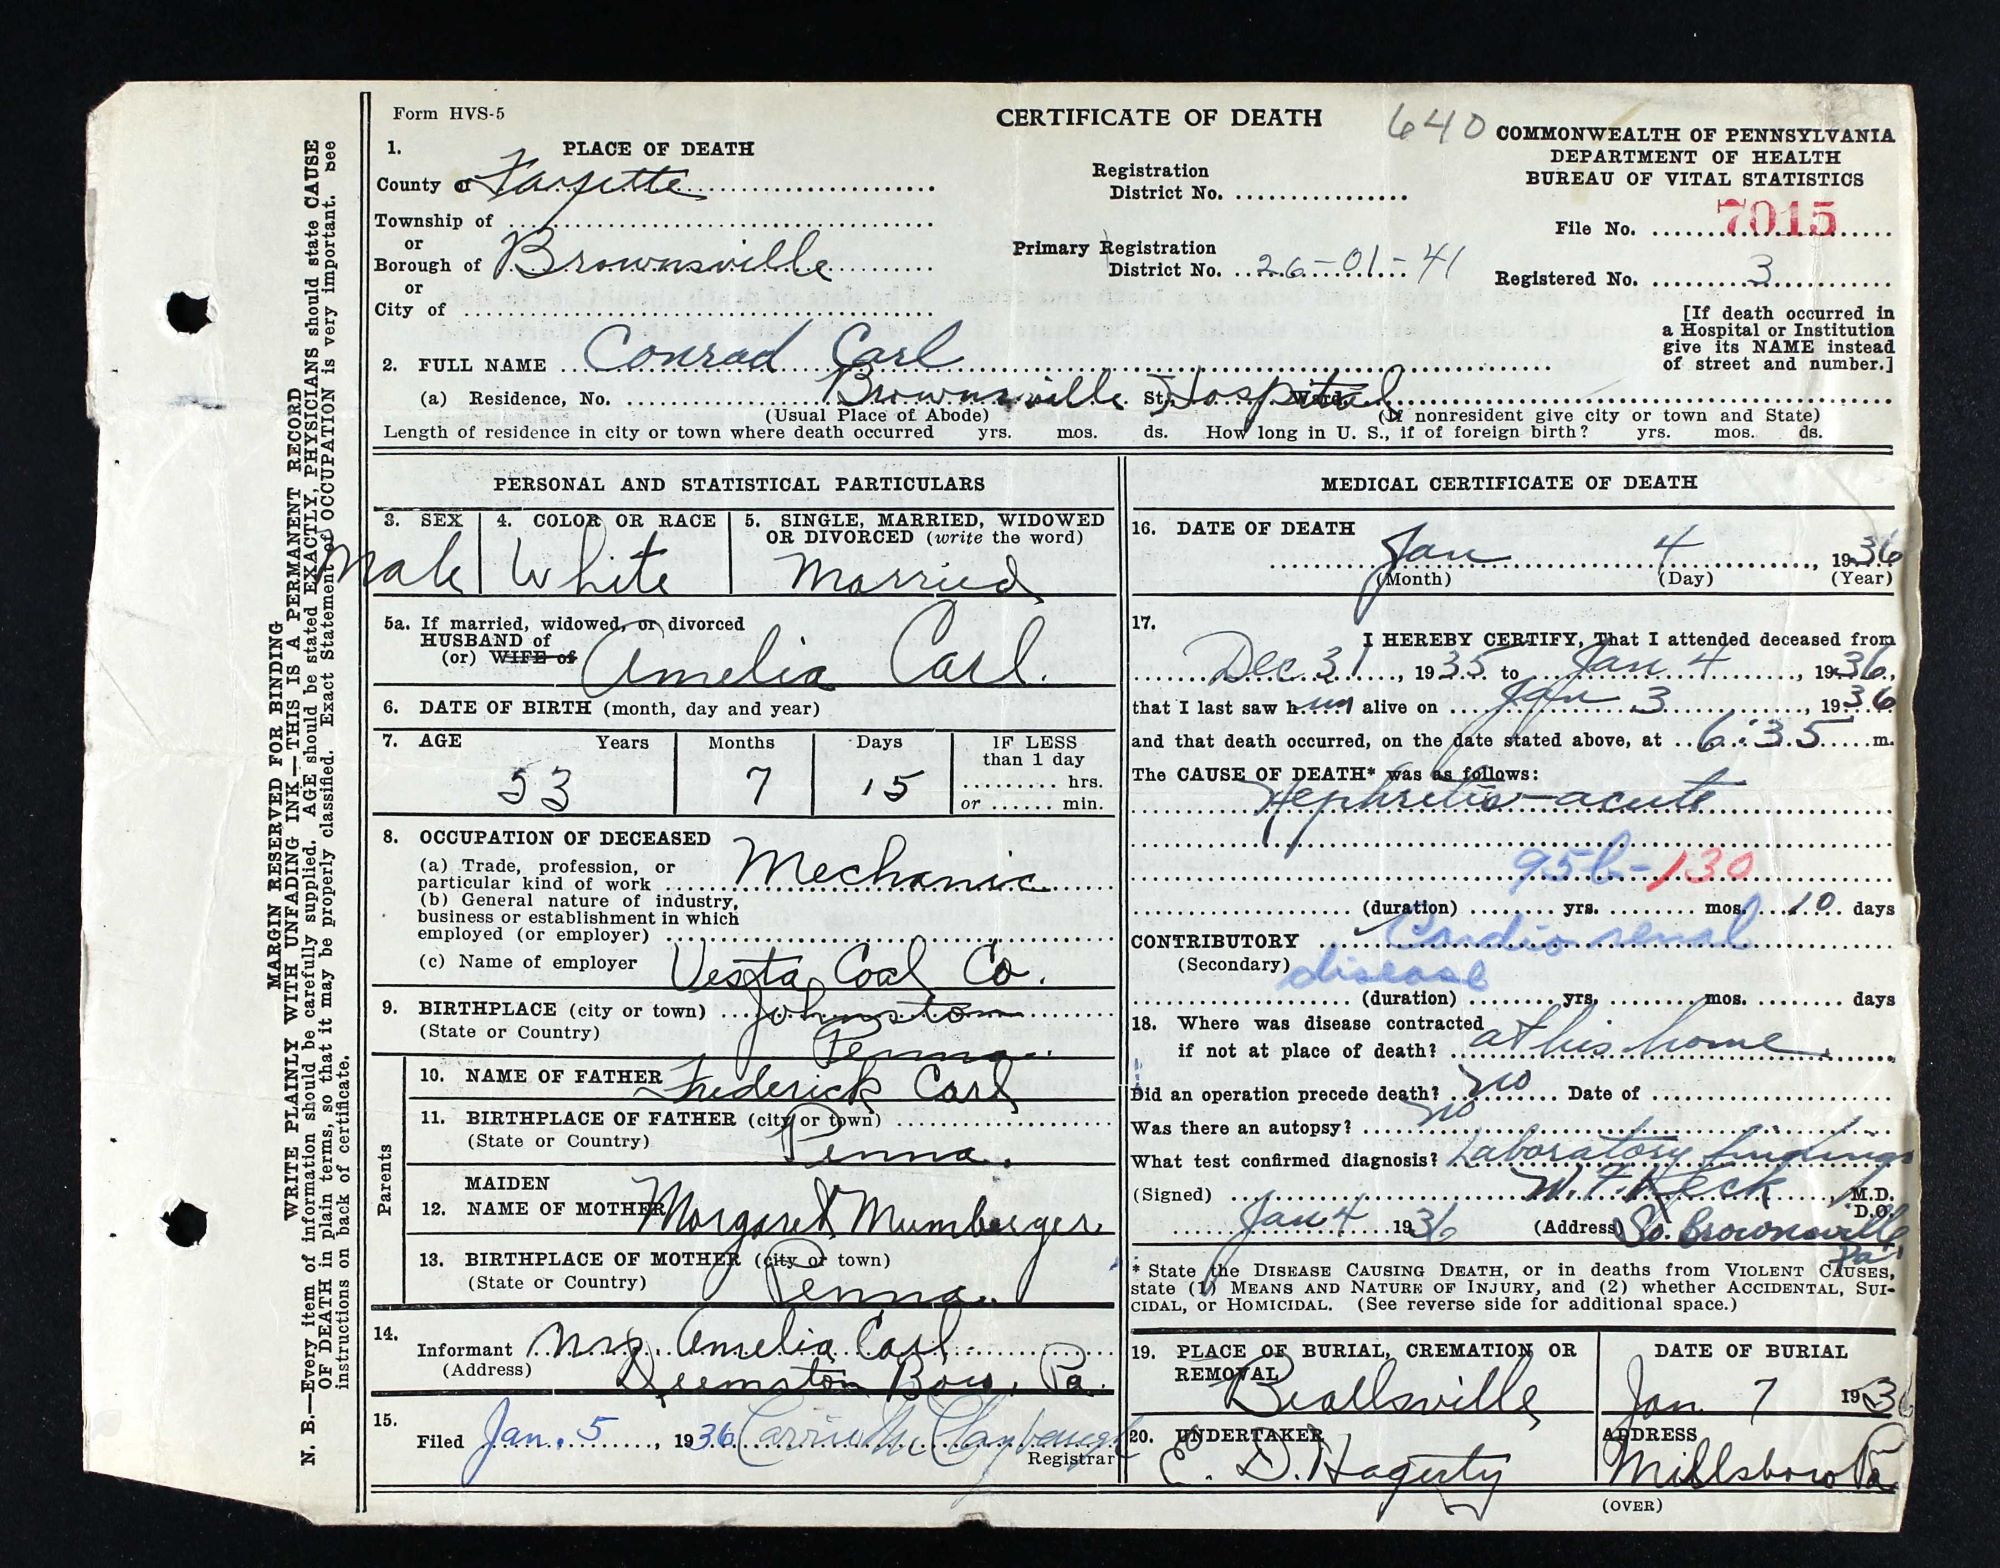 Form HVS-5
CERTIFICATE OF DEATH
640
COMMONWEALTH OF PENNSYLVANIA
DEPARTMENT OF HEALTH
BUREAU OF VITAL STATISTICS
1. PLACE OF DEATH
County of Fayette
Township of
or
Borough of Brownsville
or
City of
Registration
District No.
Primary Registration
District No. 26-01-41
File No. 7015
Registered No. 3
[If death occurred in
a Hospital or Institution
give its NAME instead
of street and number.]
2. FULL NAME Conrad Carl
(a) Residence, No. Brownsville St., Hospital Ward,
(Usual Place of Abode) (If nonresident give city or town and State)
Length of residence in city or town where death occurred yrs. mos. ds. How long in U. S., if of foreign birth? yrs. mos. ds.
PERSONAL AND STATISTICAL PARTICULARS
3. SEX 4. COLOR OR RACE 5. SINGLE, MARRIED, WIDOWED
OR DIVORCED (write the word)
Male White Married
5a. If married, widowed, or divorced
HUSBAND of
(or) WIFE of Amelia Carl.
6. DATE OF BIRTH (month, day and year)
7. AGE Years Months Days IF LESS
than 1 day
hrs.
or min.
53 7 15
8. OCCUPATION OF DECEASED
(a) Trade, profession, or
particular kind of work Mechanic
(b) General nature of industry,
business or establishment in which
employed (or employer)
(c) Name of employer Vesta Coal Co.
9. BIRTHPLACE (city or town) Johnston
(State or Country) Penna.
Parents
10. NAME OF FATHER Frederick Carl
11. BIRTHPLACE OF FATHER (city or town)
(State or Country) Penna.
MAIDEN
12. NAME OF MOTHER Margaret Mumberger
13. BIRTHPLACE OF MOTHER (city or town)
(State or Country) Penna.
14.
Informant Mrs. Amelia Carl
(Address) Deemston Boro, Pa.
15.
Filed Jan. 5, 1936 Carrie M. Claybaugh
Registrar
MEDICAL CERTIFICATE OF DEATH
16. DATE OF DEATH
Jan 4, 1936
(Month) (Day) (Year)
17.
I HEREBY CERTIFY, That I attended deceased from
Dec 31, 1935 to Jan 4, 1936,
that I last saw him alive on Jan 3, 1936
and that death occurred, on the date stated above, at 6:35 m.
The CAUSE OF DEATH* was as follows:
Nephritis-acute
95b-130
(duration) yrs. mos. 10 days
CONTRIBUTORY Cardio renal
(Secondary) disease
(duration) yrs. mos. days
18. Where was disease contracted
if not at place of death? at his home.
Did an operation precede death? no Date of
Was there an autopsy? no
What test confirmed diagnosis? Laboratory findings
(Signed) W. F. Keck, M.D.
D.O.
Jan 4 1936 (Address) So. Brownsville
Pa.
* State the DISEASE CAUSING DEATH, or in deaths from VIOLENT CAUSES,
state (1) MEANS AND NATURE OF INJURY, and (2) whether ACCIDENTAL, SUI-
CIDAL, or HOMICIDAL. (See reverse side for additional space.)
19. PLACE OF BURIAL, CREMATION OR
REMOVAL
Beallsville
DATE OF BURIAL
Jan 7 1936
20. UNDERTAKER
E. D. Hagerty
ADDRESS
Millsboro Pa
(OVER)
MARGIN RESERVED FOR BINDING
WRITE PLAINLY WITH UNFADING INK—THIS IS A PERMANENT RECORD
N. B.—Every item of information should be carefully supplied. AGE should be stated EXACTLY, PHYSICIANS should state CAUSE
OF DEATH in plain terms, so that it may be properly classified. Exact Statement of OCCUPATION is very important. See
instructions on back of certificate.